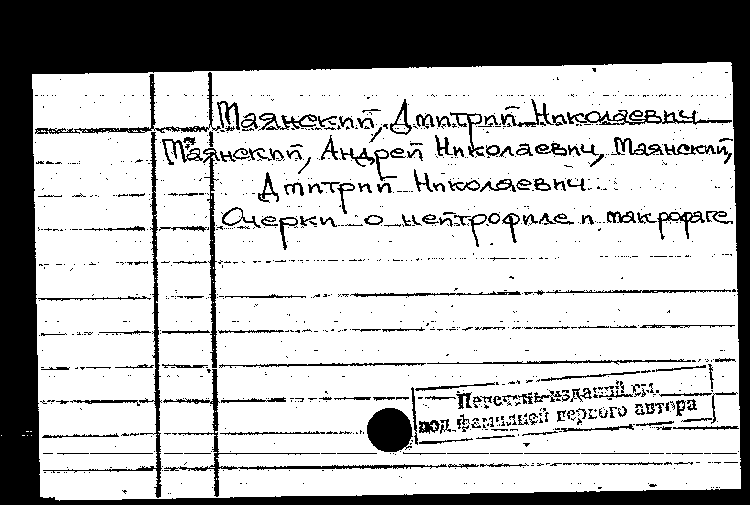 Маянский, Дмитрий Николаевич
Маянский, Андрей Николаевич, Маянский,
Дмитрий Николаевич
Очерки о нейтрофиле и макрофаге
Перечень изданий см.
под фамилией первого автора